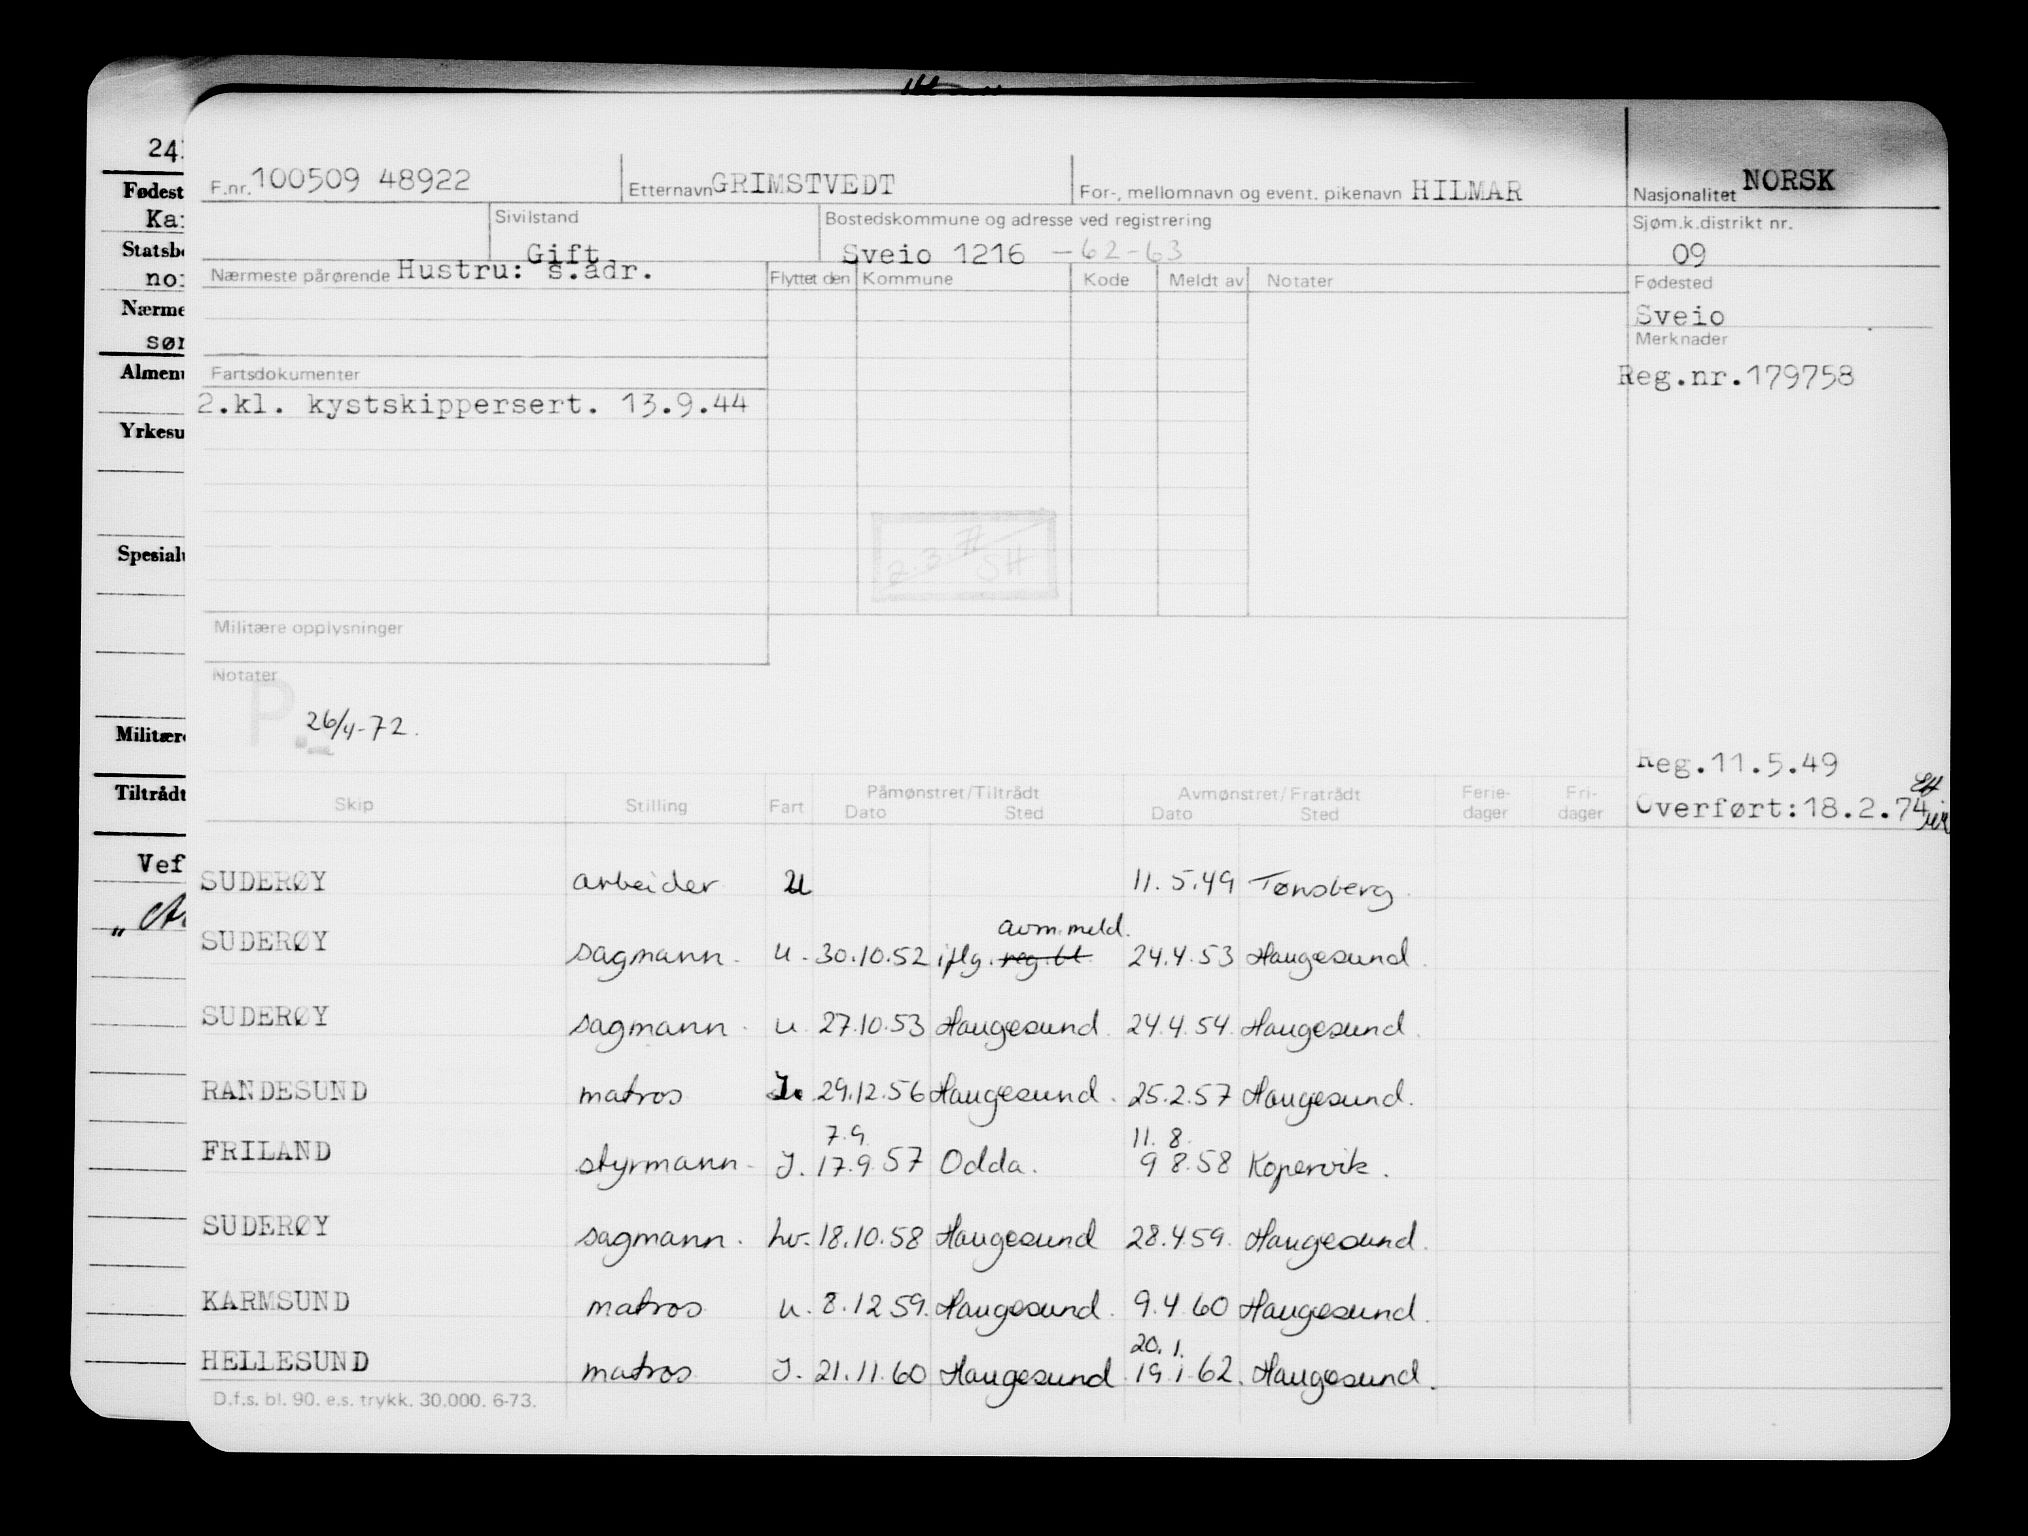 24
Fødest
Ka
Statsb
no
Nærme
sør
Almen
Yrkesu
Spesial
Militær
Tiltrådt
Vef
F.nr. 100509 48922 Etternavn GRIMSTVEDT For-, mellomnavn og event. pikenavn HILMAR Nasjonalitet NORSK
Sivilstand Bostedskommune og adresse ved registrering Sjøm.k.distrikt nr.
Gift Sveio 1216 -62-63 09
Nærmeste pårørende Hustru: s.adr. Flyttet den Kommune Kode Meldt av Notater Fødested
Sveio
Merknader
Fartsdokumenter Reg.nr.179758
2.kl. kystskippersert. 13.9.44
SH
Militære opplysninger
Notater
P
26/4-72.
Reg.11.5.49
Overført:18.2.74
Skip Stilling Fart Påmønstret/Tiltrådt Avmønstret/Fratrådt Ferie- Fri-
Dato Sted Dato Sted dager dager
SUDERØY arbeider U 11.5.49 Tønsberg.
avm.meld.
SUDERØY sagmann. u. 30.10.52 iflg. reg.bl. 24.4.53 Haugesund.
SUDERØY sagmann. u. 27.10.53 Haugesund. 24.4.54 Haugesund.
RANDESUND matros J. 29.12.56 Haugesund. 25.2.57 Haugesund.
7.9. 11. 8.
FRILAND styrmann. J. 17.9.57 Odda. 9 8.58 Kopervik.
SUDERØY sagmann. hv. 18.10.58 Haugesund 28.4.59. Haugesund.
KARMSUND matros u. 8.12 59. Haugesund. 9.4.60 Haugesund.
20. 1.
HELLESUND matros J. 21.11.60 Haugesund. 19.1.62. Haugesund.
D.f.s. bl. 90. e.s. trykk. 30.000. 6-73.